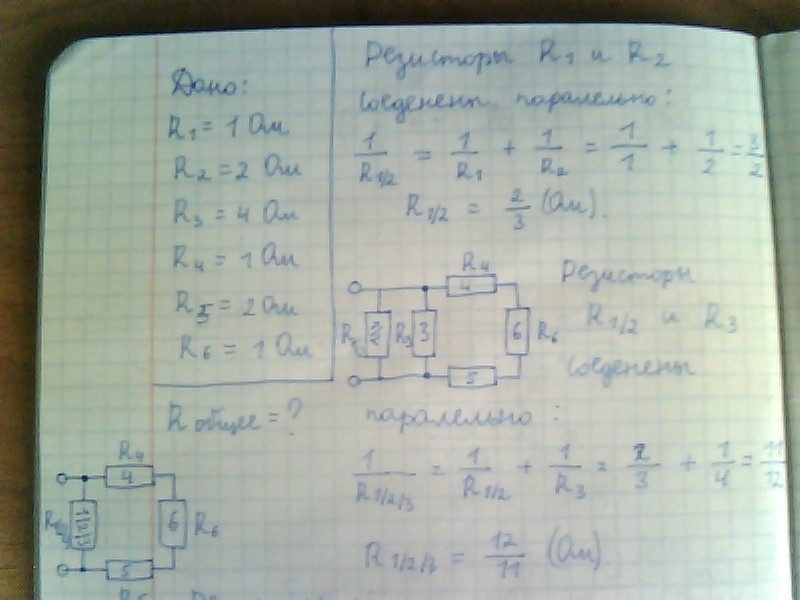 Дано:
R1 = 1 Ом
R2 = 2 Ом
R3 = 4 Ом
R4 = 1 Ом
R5 = 2 Ом
R6 = 1 Ом
R общее = ?
Резисторы R1 и R2
соеденены паралельно:
1/R1/2 = 1/R1 + 1/R2 = 1/1 + 1/2 = 3/2
R1/2 = 2/3 (Ом).
R4
4
3
R3
6
R6
5
Резисторы
R1/2 и R3
соеденены
паралельно:
1/R1/2/3 = 1/R1/2 + 1/R3 = 2/3 + 1/4 = 11/12
R1/2/3 = 12/11 (Ом).
R4
4
1/2/3
6
R6
5
R5